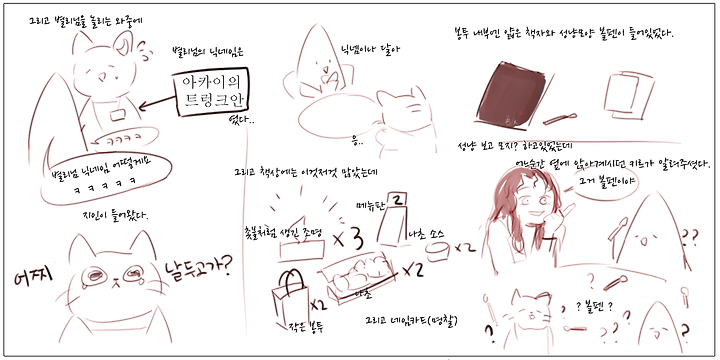 그리고 별리님을 놀리는 와중에
별리님의 닉네임은
아카이의
트렁크안
였다..
ㅋㅋㅋㅋ
별리님 닉네임 어떻게요
ㅋㅋㅋㅋㅋ
지인이 들어왔다.
어찌
날두고가?
닉넴이나 달아
응..
그리고 책상에는 이것저것 많았는데
촛불처럼 생긴 조명
x3
메뉴판
2
나초 소스
x2
x2
나초
x2
작은 봉투
그리고 네임카드(명찰)
봉투 내부엔 얇은 책자와 성냥모양 볼펜이 들어있었다.
성냥 보고 모지? 하고있었는데
어느순간 옆에 앉아계시던 키르가 알려주셨다.
그거 볼펜이야
??
? 볼펜 ?